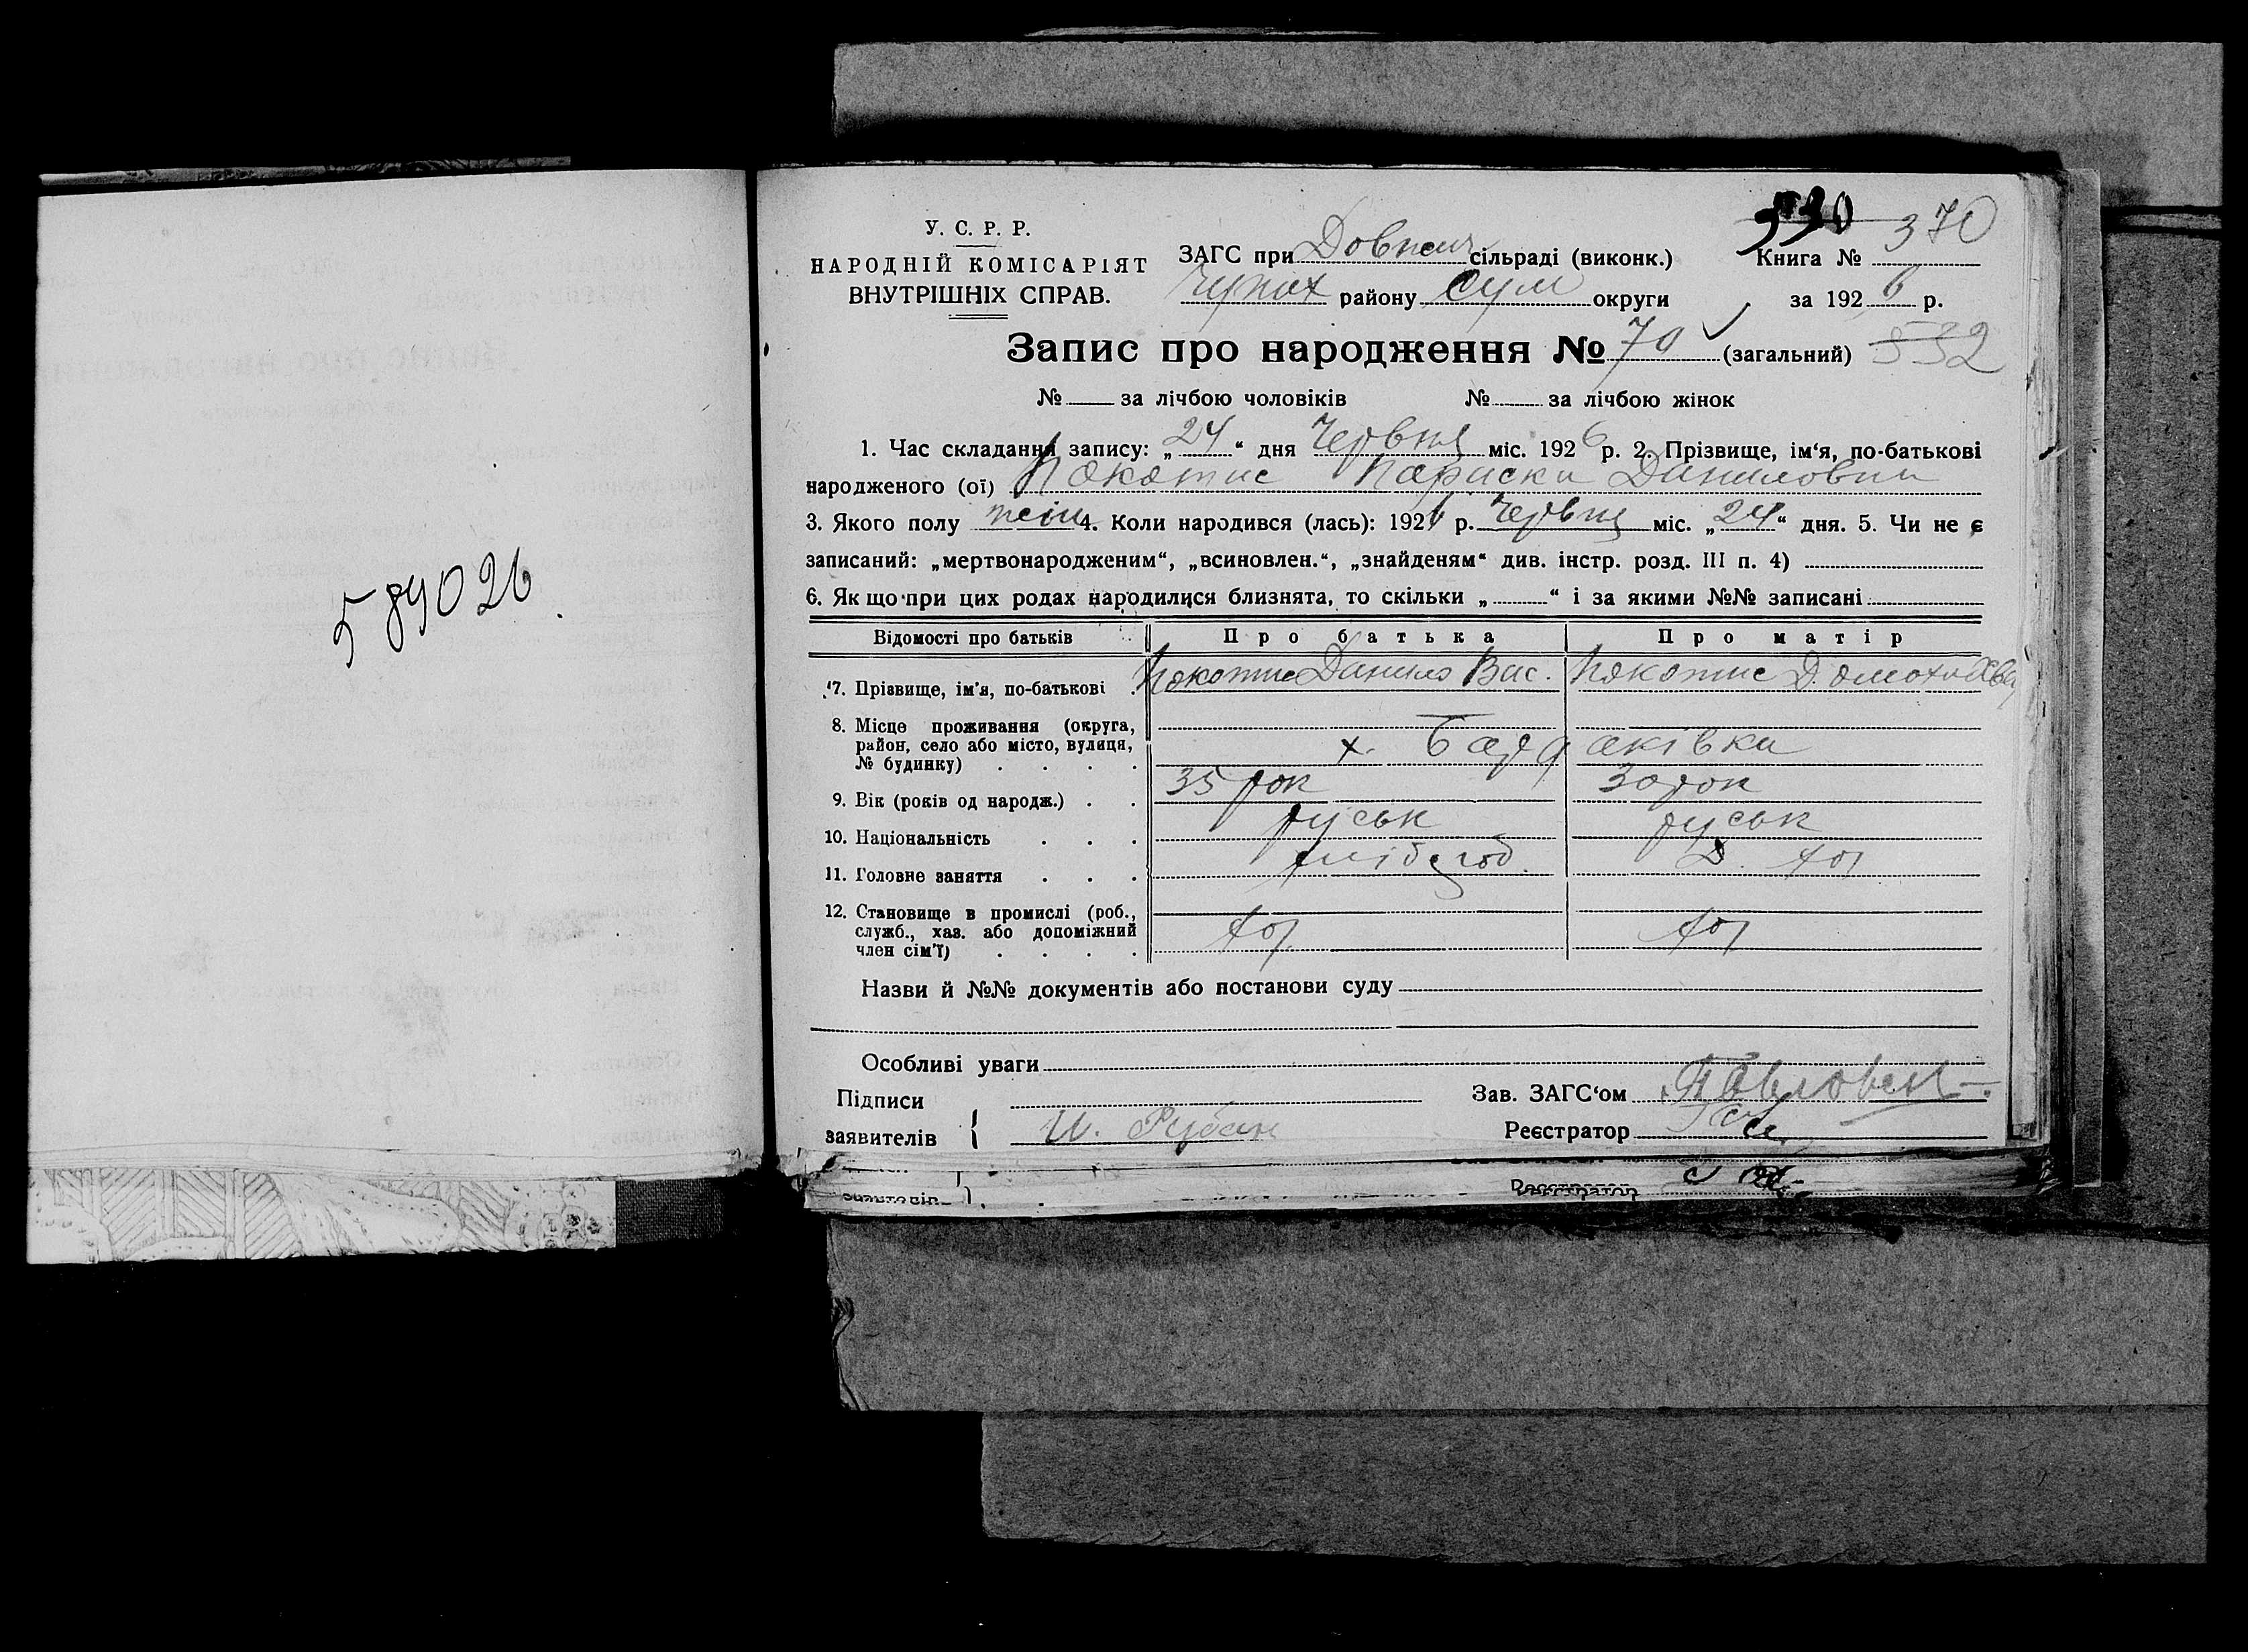 589026
У. С. Р. Р.
НАРОДНІЙ КОМІСАРІЯТ
ВНУТРІШНІХ СПРАВ.
ЗАГС при сільраді (виконк.)
району Сум округи
530
Книга № 370
за 1926 р.
Запис про народження № 70 (загальний) 532
№ за лічбою чоловіків № за лічбою жінок
1. Час складання запису: „24“ дня Червня міс. 1926 р. 2. Прізвище, ім‘я, по-батькові
народженого (ої) Параски Даниловни
3. Якого полу 4. Коли народився (лась): 1926 р. Червня міс. „24“ дня. 5. Чи не є
записаний: „мертвонародженим“, „всиновлен.“, „знайденям“ див. інстр. розд. III п. 4)
6. Якщо при цих родах народилися близнята, то скільки „ “ і за якими №№ записані
Відомості про батьків Про батька Про матір
7. Прізвище, ім'я, по-батькові Данило Вас.
8. Місце проживання (округа,
район, село або місто, вулиця,
№ будинку) х.
9. Вік (років од народж.) 35 рок 30 рок
10. Національність руськ руськ
11. Головне заняття хлібороб. Д. хоз
12. Становище в промислі (роб.,
служб., хаз. або допоміжний
член сім'ї) хоз хоз
Назви й №№ документів або постанови суду
Особливі уваги
Підписи
заявителів И. Рубан
Зав. ЗАГС‘ом
Реєстратор
Реєстратор